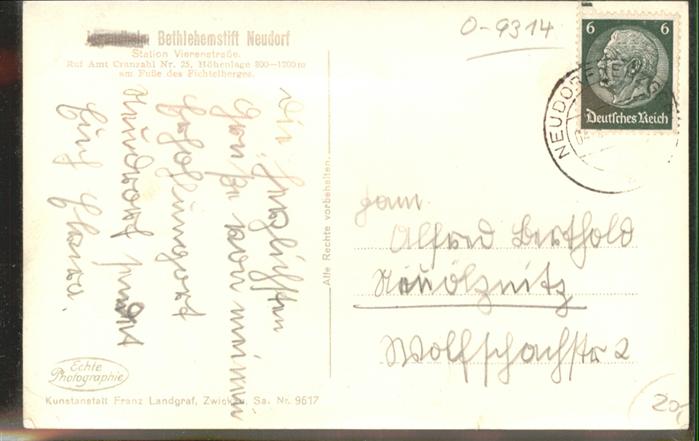 Bethlehemstift Neudorf
Station Vierenstraße.
Ruf Amt Cranzahl Nr. 25, Höhenlage 800—1200 m
am Fuße des Fichtelberges.
O-9314
6 6
Deutsches Reich
NEUDORF
Die herzlichsten
Grüße von meinem
Erholungsort
Neudorf sendet
Euch
Alle Rechte vorbehalten.
Fam.
Alfred Berthold
Neuölsnitz
Wolfschachtstr 2
Echte
Photographie
Kunstanstalt Franz Landgraf, Zwickau, Sa. Nr. 9617